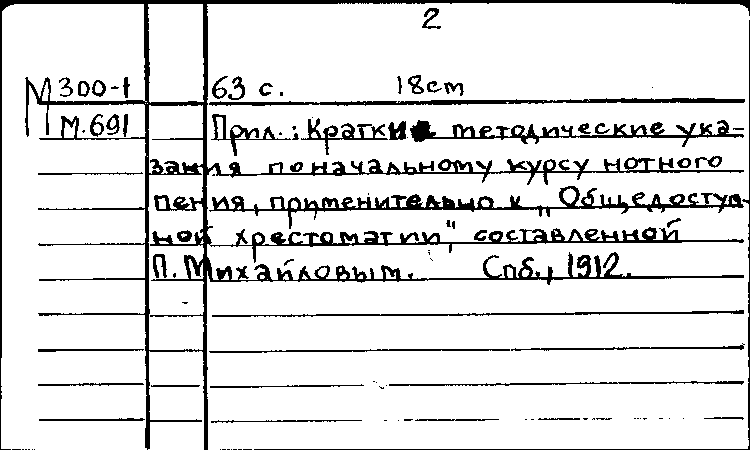 2
М 300-1 63 с. 18см
М.691 Прил.: Краткие методические ука-
зания по начальному курсу нотного
пения, применительно к „Общедоступ-
ной хрестоматии", составленной
П. Михайловым. Спб., 1912.